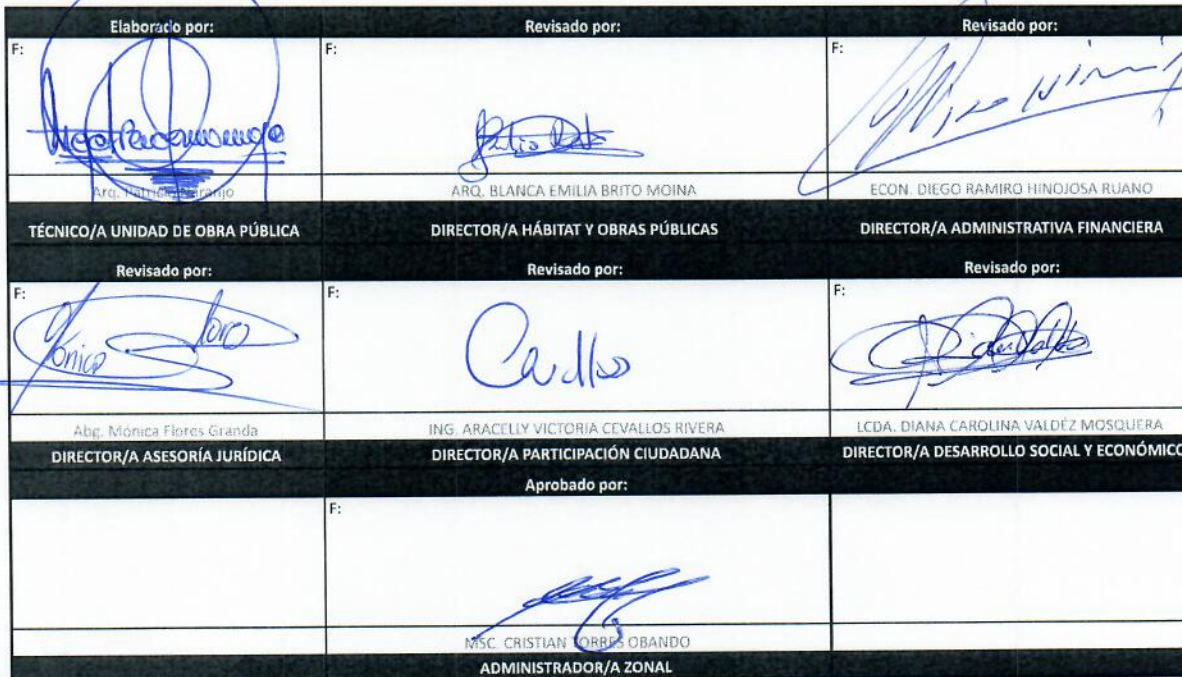 Elaborado por: Revisado por: Revisado por:
F: F: F:
Arq. Patricio Naranjo ARQ. BLANCA EMILIA BRITO MOINA ECON. DIEGO RAMIRO HINOJOSA RUANO
TÉCNICO/A UNIDAD DE OBRA PÚBLICA DIRECTOR/A HÁBITAT Y OBRAS PÚBLICAS DIRECTOR/A ADMINISTRATIVA FINANCIERA
Revisado por: Revisado por: Revisado por:
F: F: F:
Abg. Mónica Flores Granda ING. ARACELLY VICTORIA CEVALLOS RIVERA LCDA. DIANA CAROLINA VALDÉZ MOSQUERA
DIRECTOR/A ASESORÍA JURÍDICA DIRECTOR/A PARTICIPACIÓN CIUDADANA DIRECTOR/A DESARROLLO SOCIAL Y ECONÓMICO
Aprobado por:
F:
MSC. CRISTIAN TORRES OBANDO
ADMINISTRADOR/A ZONAL